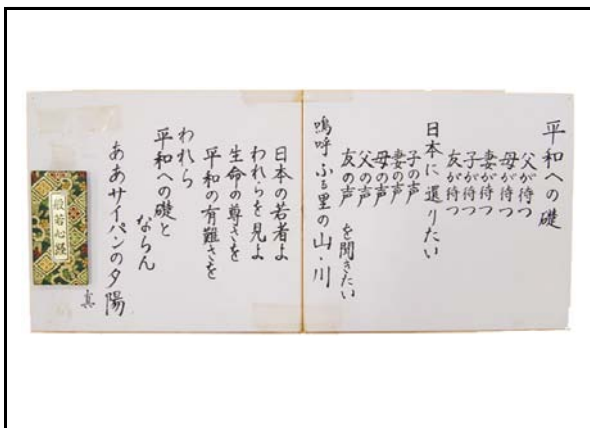 平和への礎
父が待つ
母が待つ
妻が待つ
子が待つ
友が待つ
日本に還りたい
子の声
妻の声
母の声
父の声
友の声
を聞きたい
嗚呼ふる里の山・川
日本の若者よ
われらを見よ
生命の尊さを
平和の有難さを
われら
平和への礎と
ならん
ああサイパンの夕陽
真
般若心経